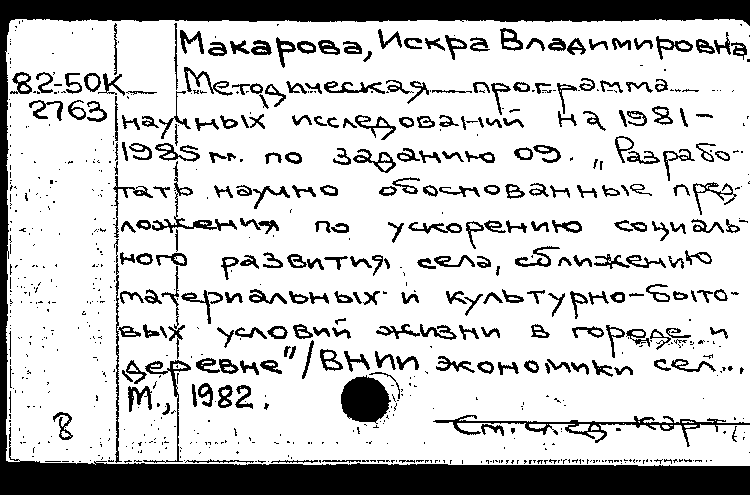 Макарова, Искра Владимировна.
82-50К Методическая программа
2763 научных исследований на 1981-
1985 гг. по заданию 09. „Разрабо-
тать научно обоснованные пред-
ложения по ускорению социаль-
ного развития села, сближению
материальных и культурно-быто-
вых условий жизни в городе и
деревне"/ВНИИ экономики сел...
М., 1982.
8 См. след. карт.